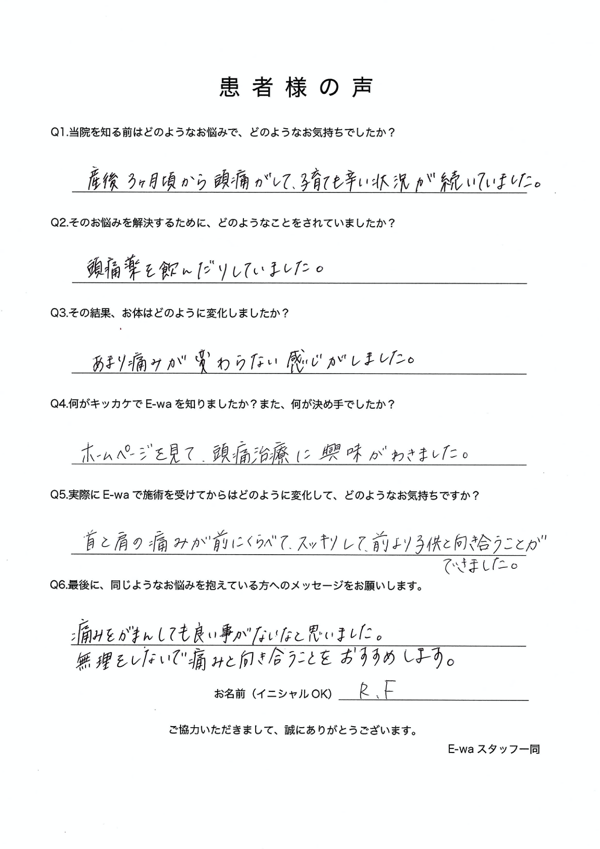 患者様の声
Q1.当院を知る前はどのようなお悩みで、どのようなお気持ちでしたか？
産後3ヶ月頃から頭痛がして、子育ても辛い状況が続いていました。
Q2.そのお悩みを解決するために、どのようなことをされていましたか？
頭痛薬を飲んだりしていました。
Q3.その結果、お体はどのように変化しましたか？
あまり痛みが変わらない感じがしました。
Q4.何がキッカケでE-waを知りましたか？また、何が決め手でしたか？
ホームページを見て、頭痛治療に興味がわきました。
Q5.実際にE-waで施術を受けてからはどのように変化して、どのようなお気持ちですか？
首と肩の痛みが前にくらべて、スッキリして、前より子供と向き合うことが
できました。
Q6.最後に、同じようなお悩みを抱えている方へのメッセージをお願いします。
痛みをがまんしても良い事がないなと思いました。
無理をしないで痛みと向き合うことをおすすめします。
お名前（イニシャルOK） R、F
ご協力いただきまして、誠にありがとうございます。
E-waスタッフ一同